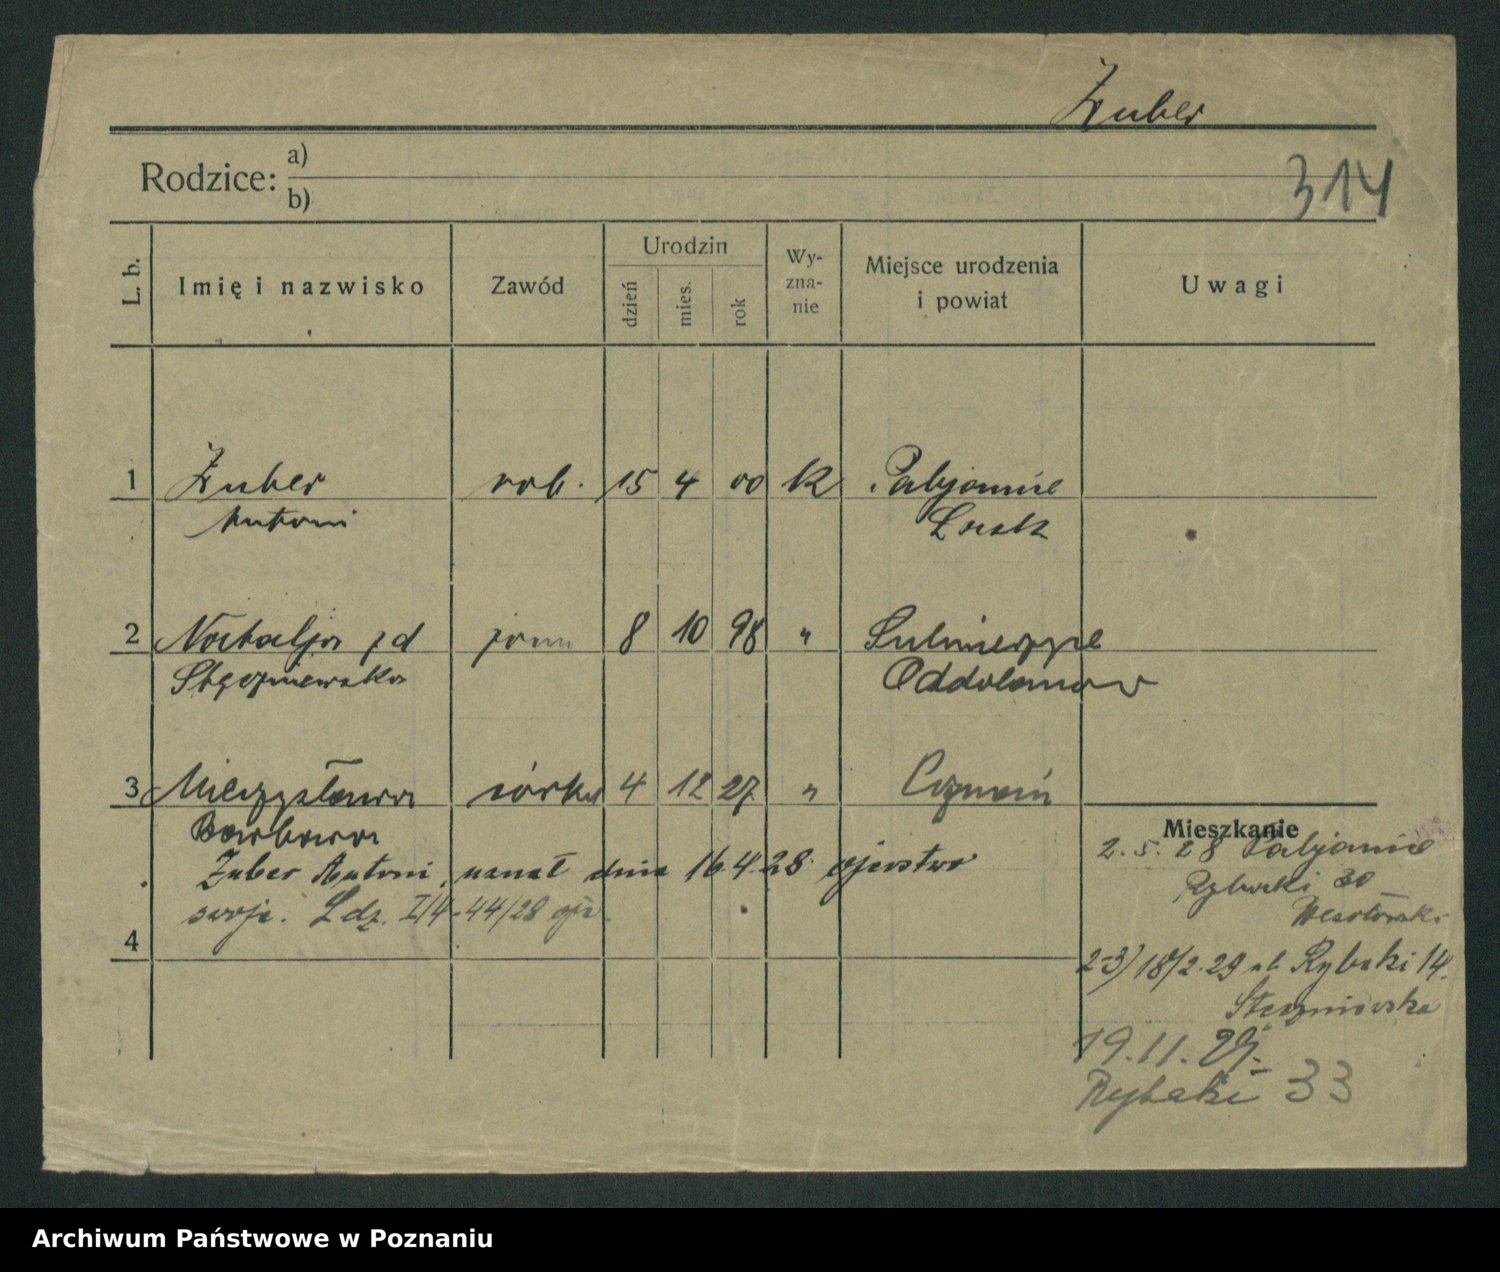 Zuber
Rodzice: a)
b)
314
L. b.
Imię i nazwisko
Zawód
Urodzin
dzień
mies.
rok
Wy-
zna-
nie
Miejsce urodzenia
i powiat
Uwagi
1 Zuber rob. 15 4 00 k Pabjanice
Antoni Łask
2 Natalja zd żona 8 10 98 " Sulmierzyce
Stęczniewska Oddolanow
3 Mieczysława córka 4 12 27 " Poznań
Barbara
Zuber Antoni, uznał dnia 16.4.28 ojcostwo
swoje. L dz. I/4-44/28
4
Mieszkanie
2.5.28 Pabjanice
Rybaki 30
2-3) 18/2.29 ul. Rybaki 14.
Stęczniewska
19.11.29.
Rybaki 33
Archiwum Państwowe w Poznaniu